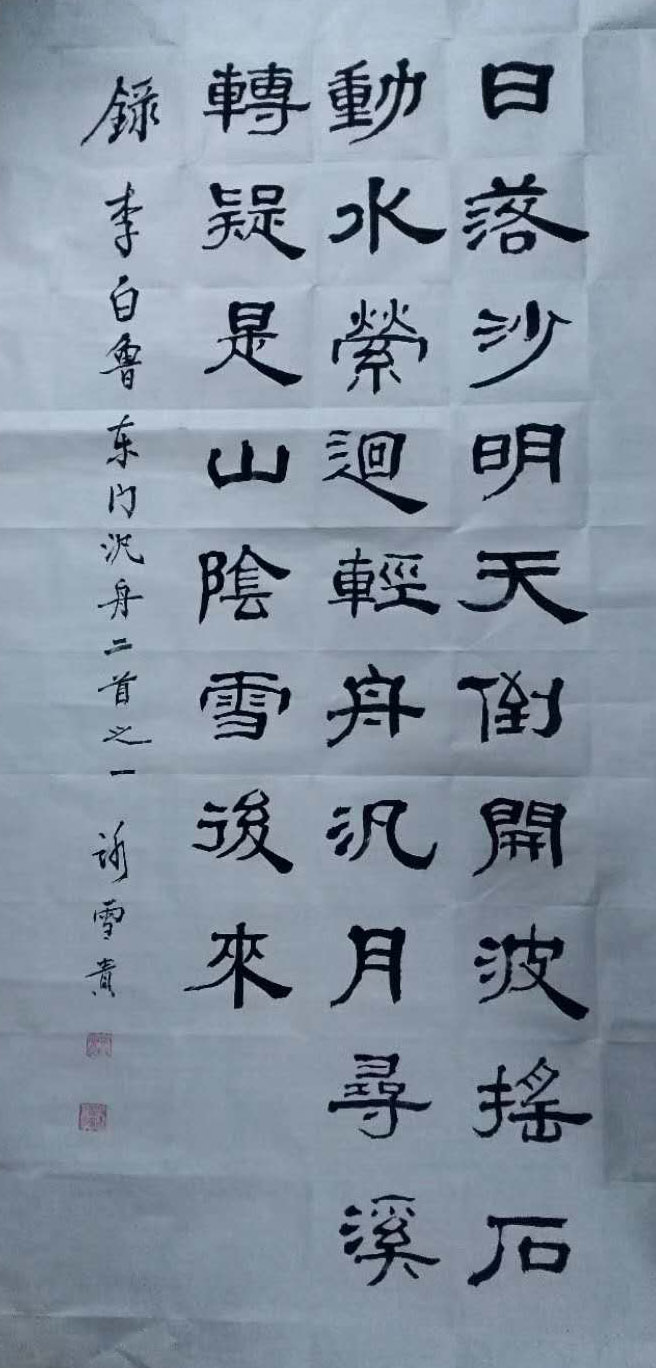 日落沙明天倒開波搖石
動水縈迴輕舟汎月尋溪
轉疑是山陰雪後來
錄李白鲁东门汎舟二首之一 雪贵